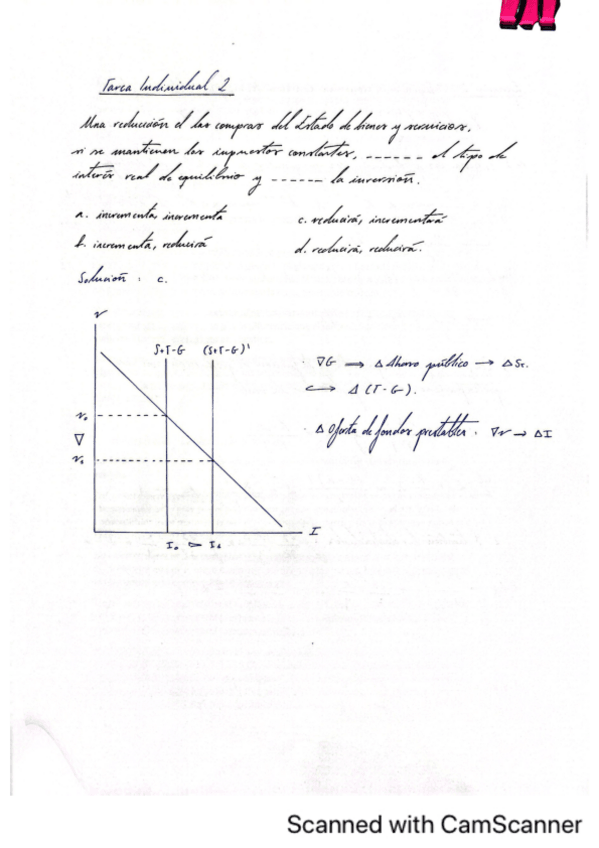 Tarea Individual 2
Una reducción el las compras del Estado de bienes y servicios,
si se mantienen los impuestos constantes, ------ el tipo de
interés real de equilibrio y ------ la inversión.
a. incrementa, incrementa
c. reducirá, incrementará
b. incrementa, reducirá
d. reducirá, reducirá.
Solución : c.
r
S+T-G (S+T-G)'
∇G → Δ Ahorro público → ΔSt.
↔ Δ (T-G).
r₀
∇
Δ Oferta de fondos prestables. ∇r → ΔI
r₁
I
I₀ I₁
Scanned with CamScanner